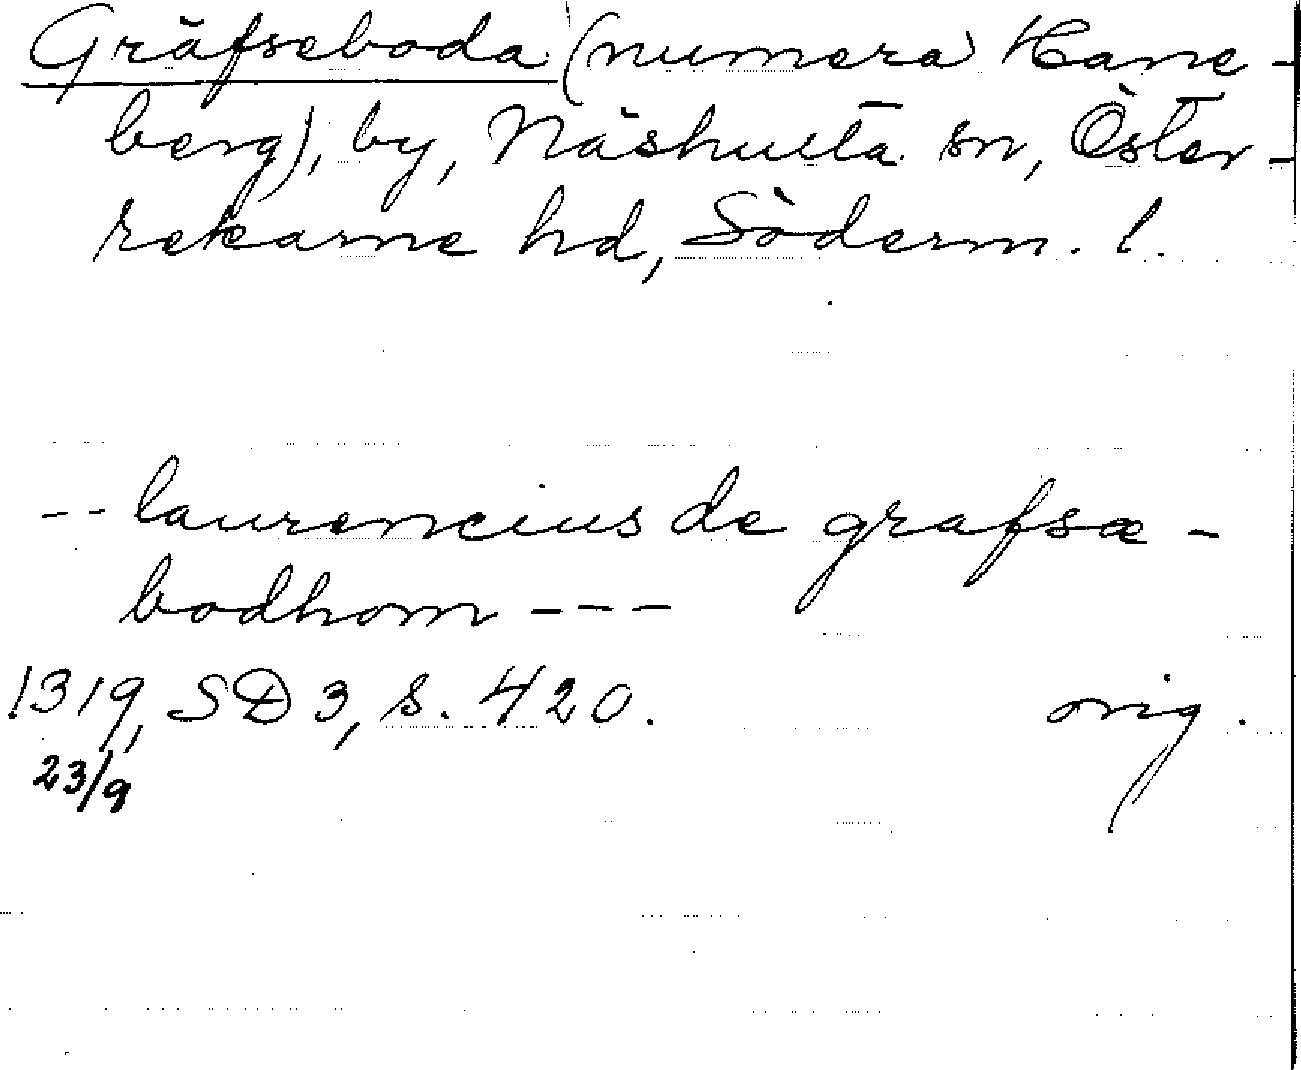 Gräfseboda (numera Kane-
berg), by, Näshulta sn, Öster-
rekarne hd, Söderm. l.
-- laurencius de grafsæ-
bodhom ---
1319, SD 3, s. 420. orig.
23/9